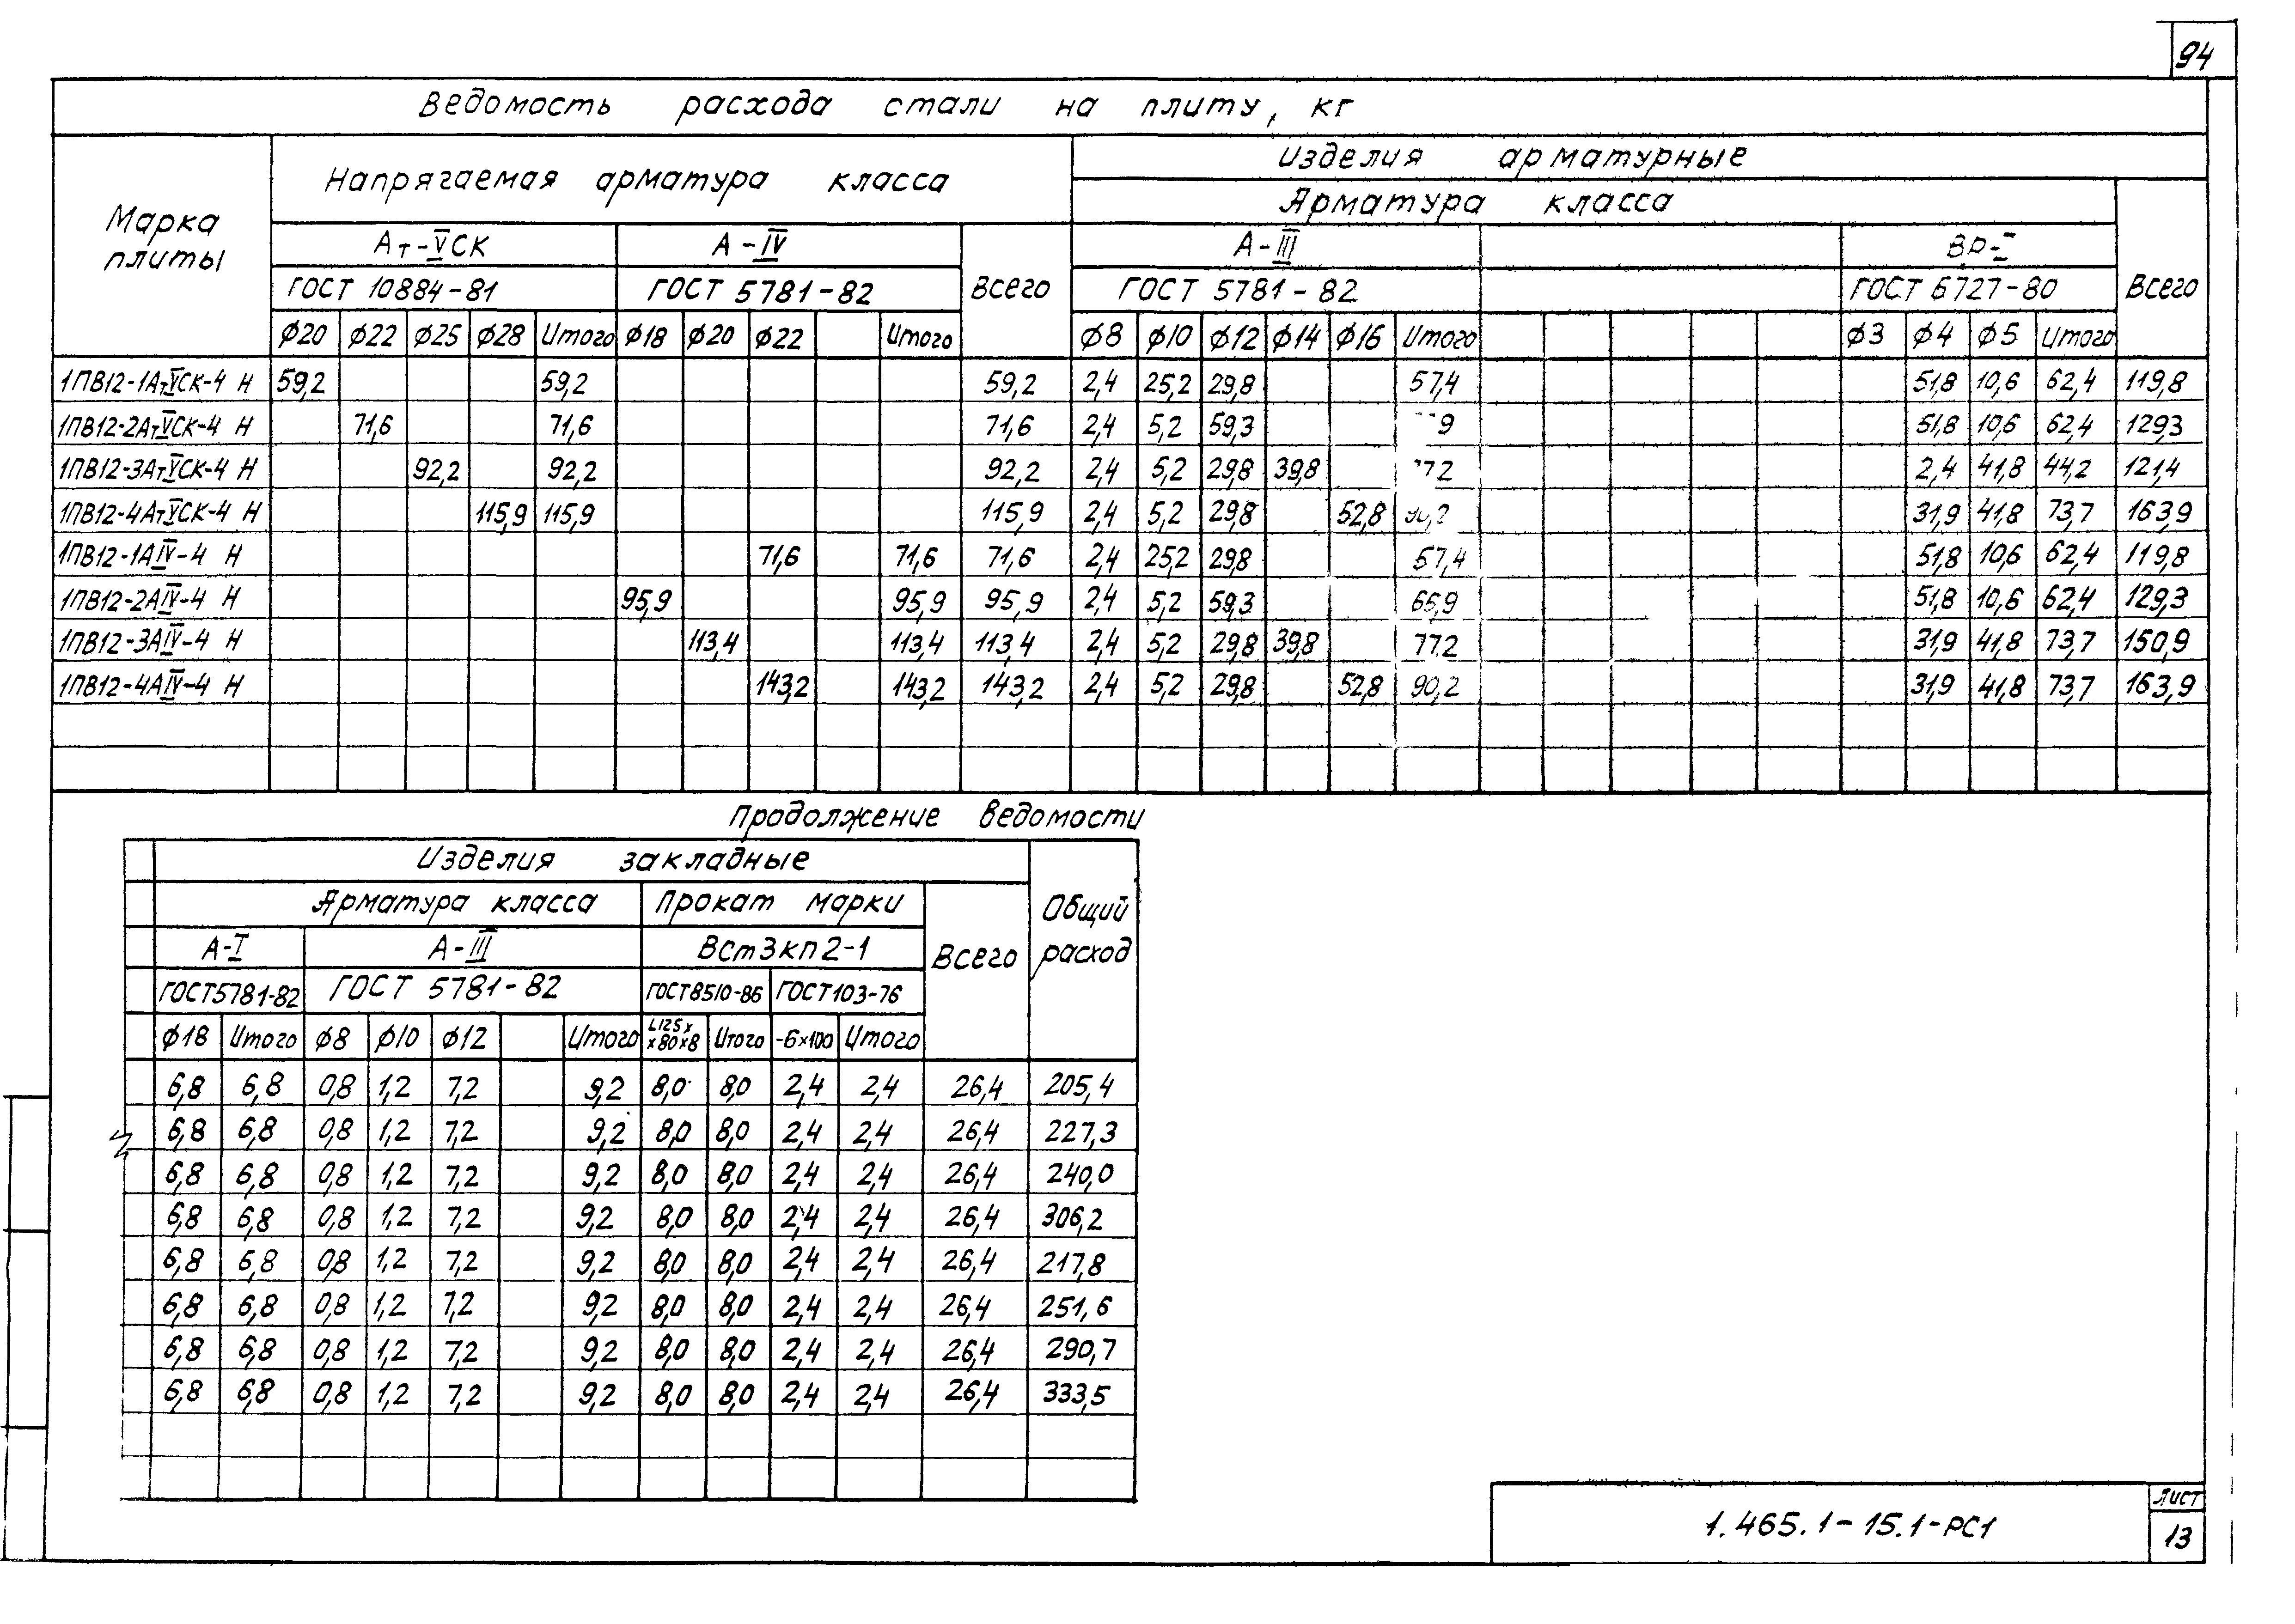 94
Ведомость расхода стали на плиту, кг
Марка плиты
Напрягаемая арматура класса
Изделия арматурные
Арматура класса
Ат-VСК А-IV Всего А-III Вр-I Всего
ГОСТ 10884-81 ГОСТ 5781-82 ГОСТ 5781-82 ГОСТ 6727-80
ф20 ф22 ф25 ф28 Итого ф18 ф20 ф22 Итого ф8 ф10 ф12 ф14 ф16 Итого ф3 ф4 ф5 Итого
1ПВ12-1АтVСК-4 Н 59,2 59,2 59,2 2,4 25,2 29,8 57,4 51,8 10,6 62,4 119,8
1ПВ12-2АтVСК-4 Н 71,6 71,6 71,6 2,4 5,2 59,3 51,8 10,6 62,4 129,3
1ПВ12-3АтVСК-4 Н 92,2 92,2 92,2 2,4 5,2 29,8 39,8 2,4 41,8 44,2 121,4
1ПВ12-4АтVСК-4 Н 115,9 115,9 115,9 2,4 5,2 29,8 52,8 90,2 31,9 41,8 73,7 163,9
1ПВ12-1АIV-4 Н 71,6 71,6 71,6 2,4 25,2 29,8 57,4 51,8 10,6 62,4 119,8
1ПВ12-2АIV-4 Н 95,9 95,9 95,9 2,4 5,2 59,3 66,9 51,8 10,6 62,4 129,3
1ПВ12-3АIV-4 Н 113,4 113,4 113,4 2,4 5,2 29,8 39,8 77,2 31,9 41,8 73,7 150,9
1ПВ12-4АIV-4 Н 143,2 143,2 143,2 2,4 5,2 29,8 52,8 90,2 31,9 41,8 73,7 163,9
Продолжение ведомости
Изделия закладные
Общий расход
Арматура класса Прокат марки
Всего
А-I А-III ВСт3кп2-1
ГОСТ5781-82 ГОСТ 5781-82 ГОСТ8510-86 ГОСТ103-76
ф18 Итого ф8 ф10 ф12 Итого L125х х80х8 Итого -6х100 Итого
6,8 6,8 0,8 1,2 7,2 9,2 8,0 8,0 2,4 2,4 26,4 205,4
6,8 6,8 0,8 1,2 7,2 9,2 8,0 8,0 2,4 2,4 26,4 227,3
6,8 6,8 0,8 1,2 7,2 9,2 8,0 8,0 2,4 2,4 26,4 240,0
6,8 6,8 0,8 1,2 7,2 9,2 8,0 8,0 2,4 2,4 26,4 306,2
6,8 6,8 0,8 1,2 7,2 9,2 8,0 8,0 2,4 2,4 26,4 217,8
6,8 6,8 0,8 1,2 7,2 9,2 8,0 8,0 2,4 2,4 26,4 251,6
6,8 6,8 0,8 1,2 7,2 9,2 8,0 8,0 2,4 2,4 26,4 290,7
6,8 6,8 0,8 1,2 7,2 9,2 8,0 8,0 2,4 2,4 26,4 333,5
1.465.1-15.1-РС1
Лист
13